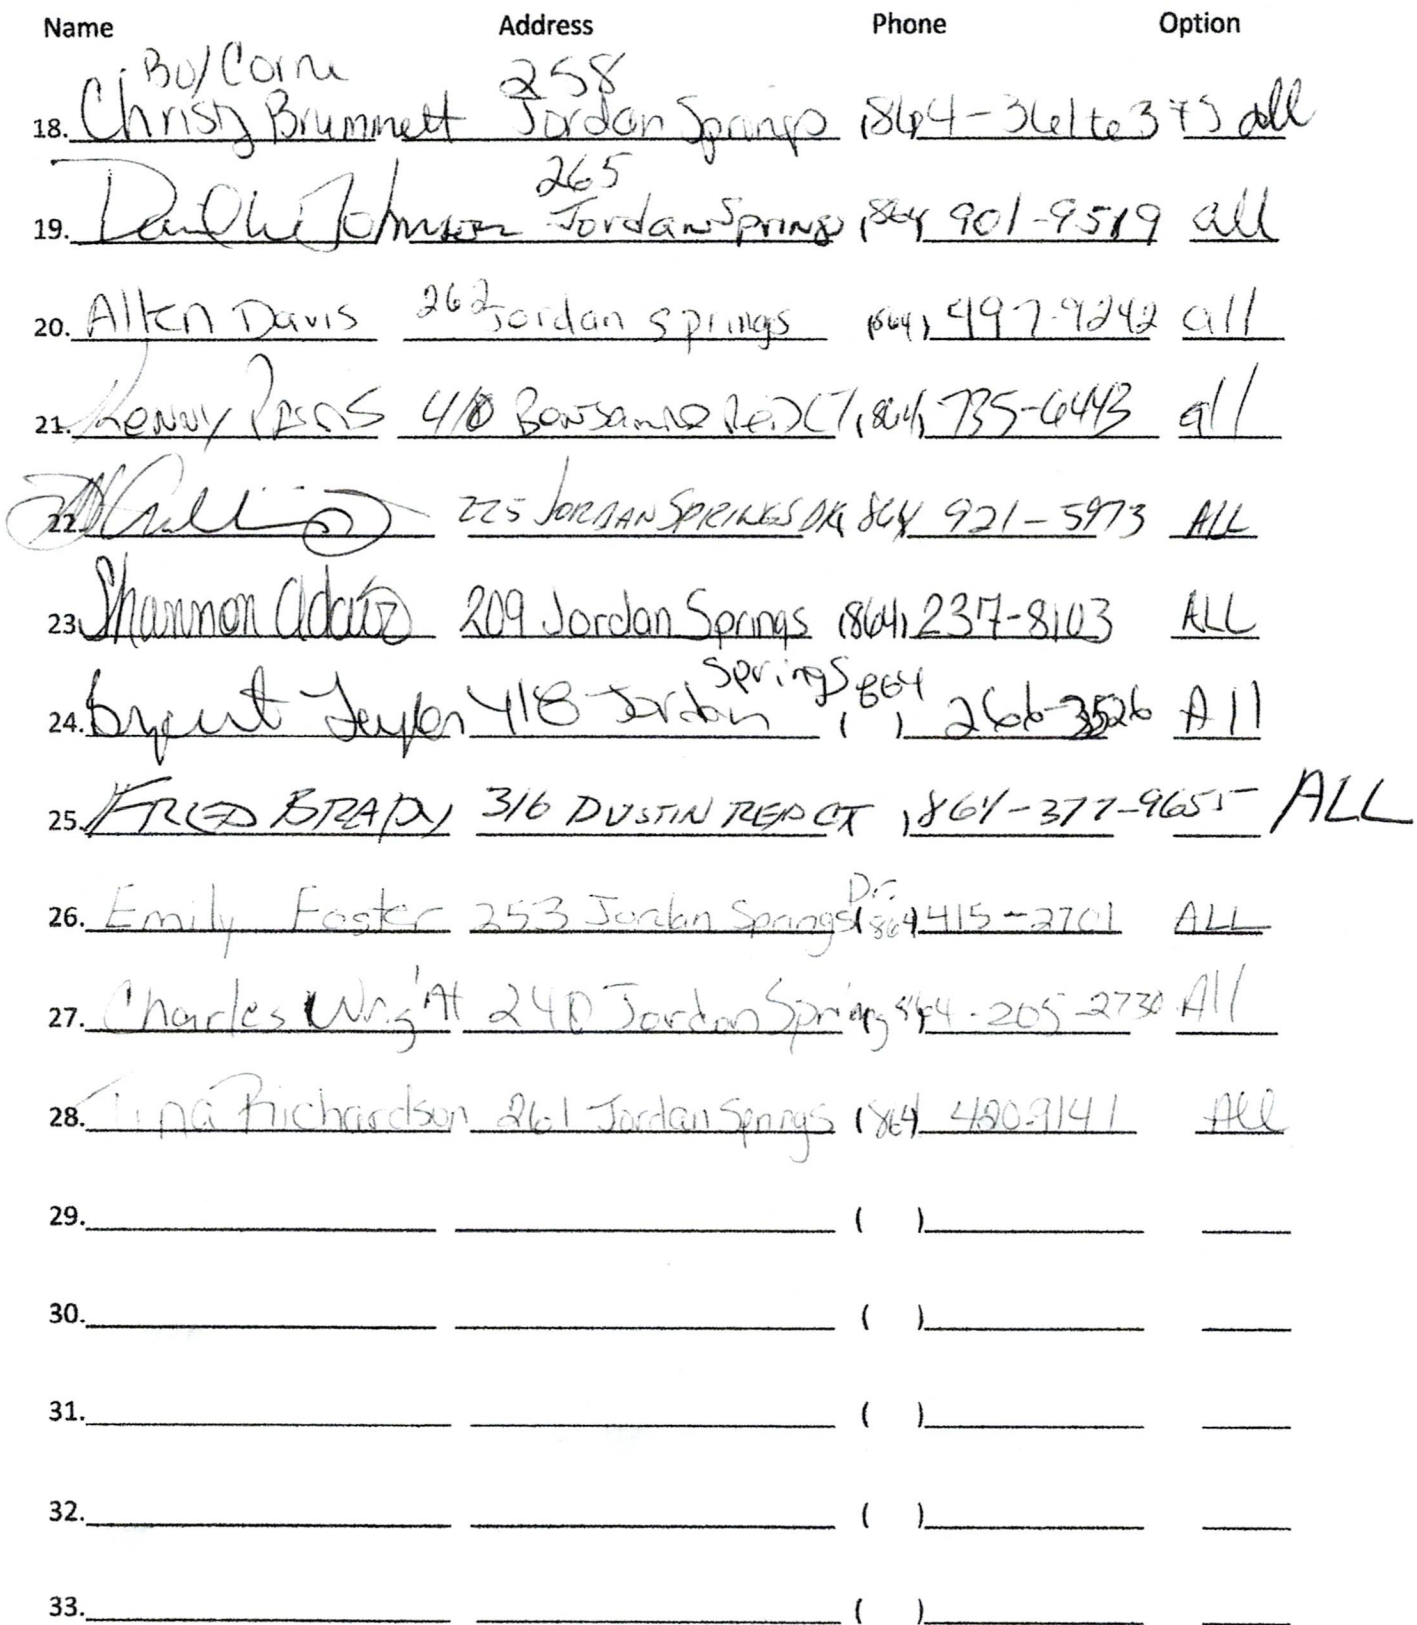 Name Address Phone Option
Bo/ 258
18. Christy Brummett Jordan Springs 864- all
265
19. Johnson Jordan Springs (864) 901-9519 all
20. Allen Davis 262 Jordan springs (864) 497-9242 all
21. Kenny 410 Reid CT (864) 735-6443 all
22. 225 JORDAN SPRINGS DR 864 921-5973 ALL
23. Shannon Adair 209 Jordan Springs (864) 237-8103 ALL
springs 864
24. 418 Jordan ( ) All
25. FRED BRADY 316 DUSTIN REID CT ) 864-377-9655 ALL
Dr.
26. Emily Foster 253 Jordan Springs (864) 415-2701 ALL
27. Charles Wright 240 Jordan Springs 864-205-2730 All
28. Tina Richardson 261 Jordan Springs (864) 420-9141 All
29. ( )
30. ( )
31. ( )
32. ( )
33. ( )